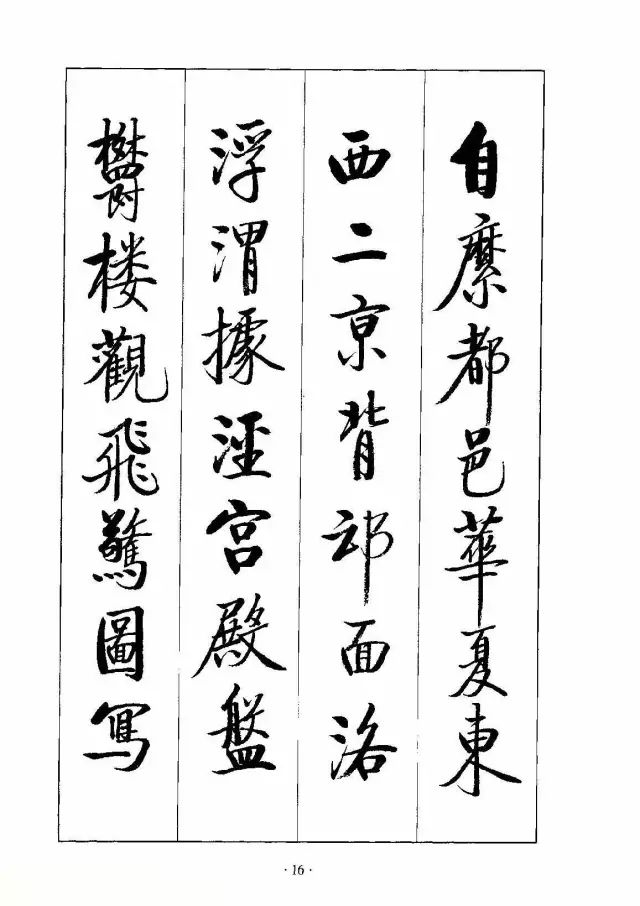 自縻都邑華夏東
西二京背邙面洛
浮渭據涇宮殿盤
鬱楼觀飛驚圖寫
· 16 ·